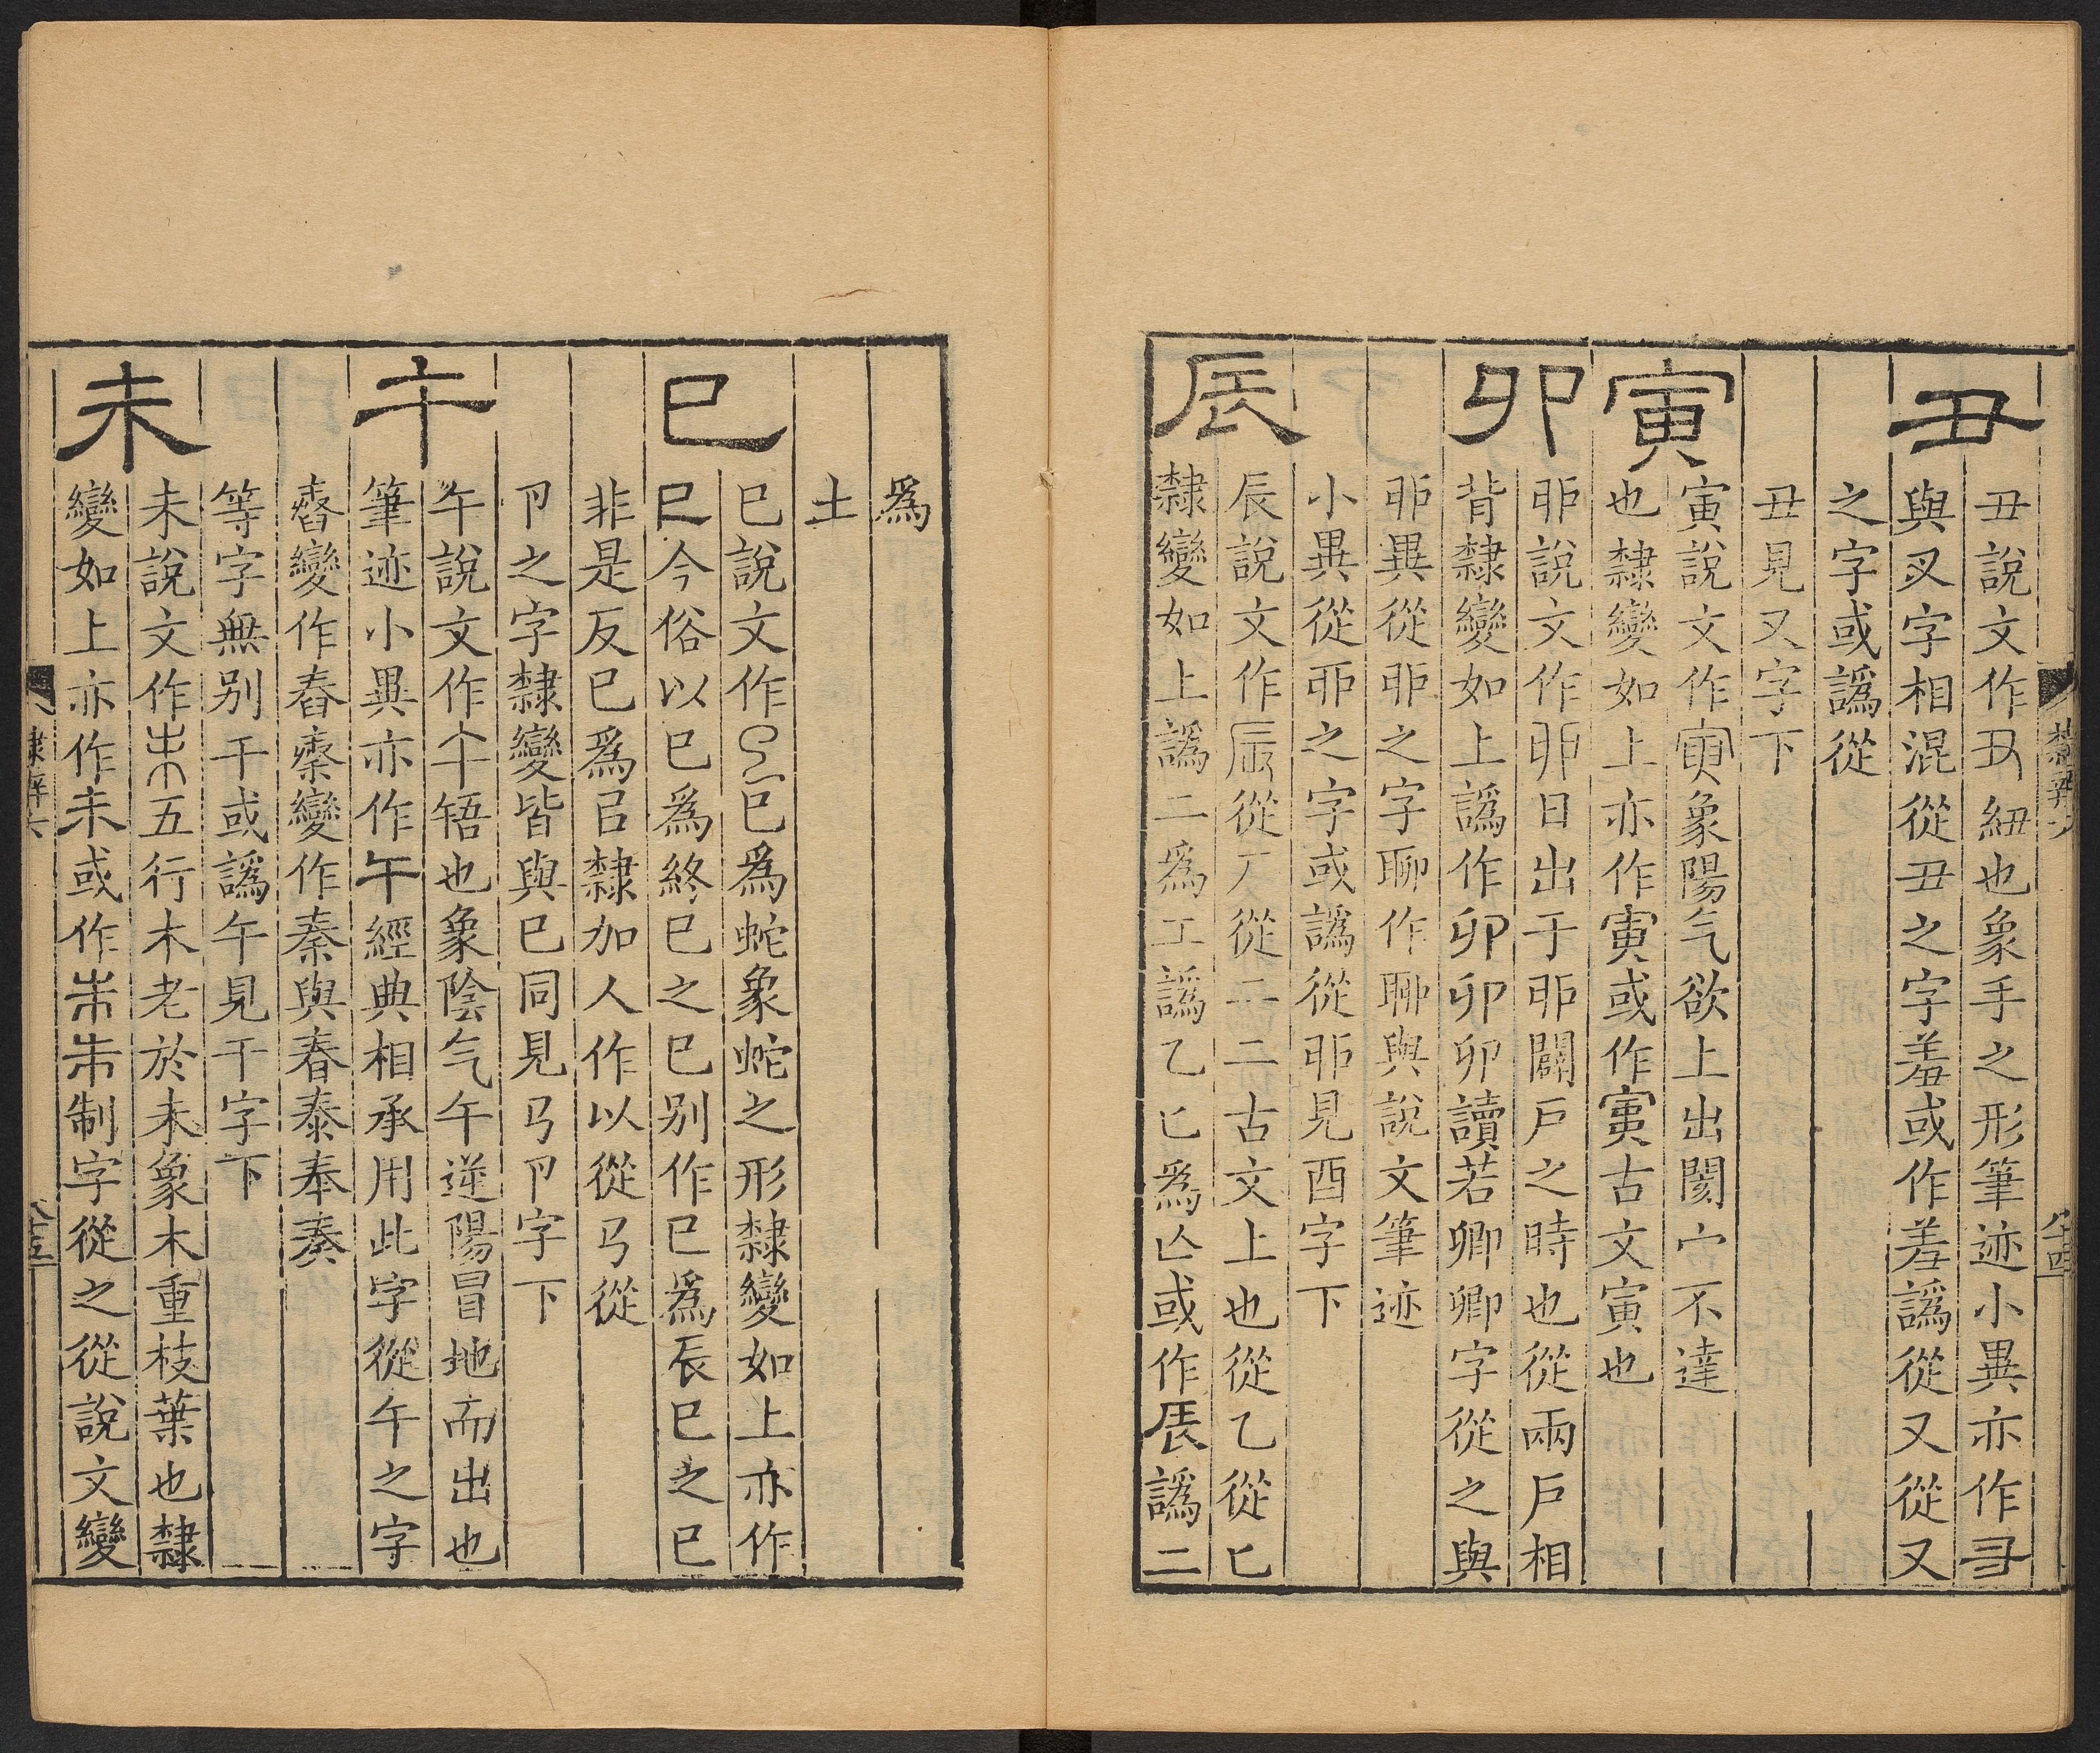 丑
丑說文作丑紐也象手之形筆迹小異亦作
與叉字相混從丑之字羞或作羞譌從又從又
之字或譌從
丑見又字下
寅
寅說文作寅象陽气欲上出闋宀不達
也隸變如上亦作寅或作寅古文寅也
卯
丣說文作丣日出于丣闢戶之時也從兩戶相
背隸變如上譌作卯卯卯讀若卿卿字從之與
丣異從丣之字聊作聊與說文筆迹
小異從丣之字或譌從丣見酉字下
辰
辰說文作辰從厂從二二古文上也從乙從匕
隸變如上譌二爲工譌乙匕爲亾或作辰譌二
隸辨六
八十四
爲
土
巳
巳說文作巳巳爲蛇象蛇之形隸變如上亦作
巳今俗以巳爲終巳之巳別作巳爲辰巳之巳
非是反巳爲㠯隸加人作以從㔾從
卩之字隸變皆與巳同見㔾卩字下
午
午說文作午啎也象陰气午逆陽冒地而出也
筆迹小異亦作午經典相承用此字從午之字
舂變作舂秦變作秦與春泰奉奏
等字無別干或譌午見干字下
未
未說文作未五行木老於未象木重枝葉也隸
變如上亦作未或作制字從之從說文變
隸辨六
八十五